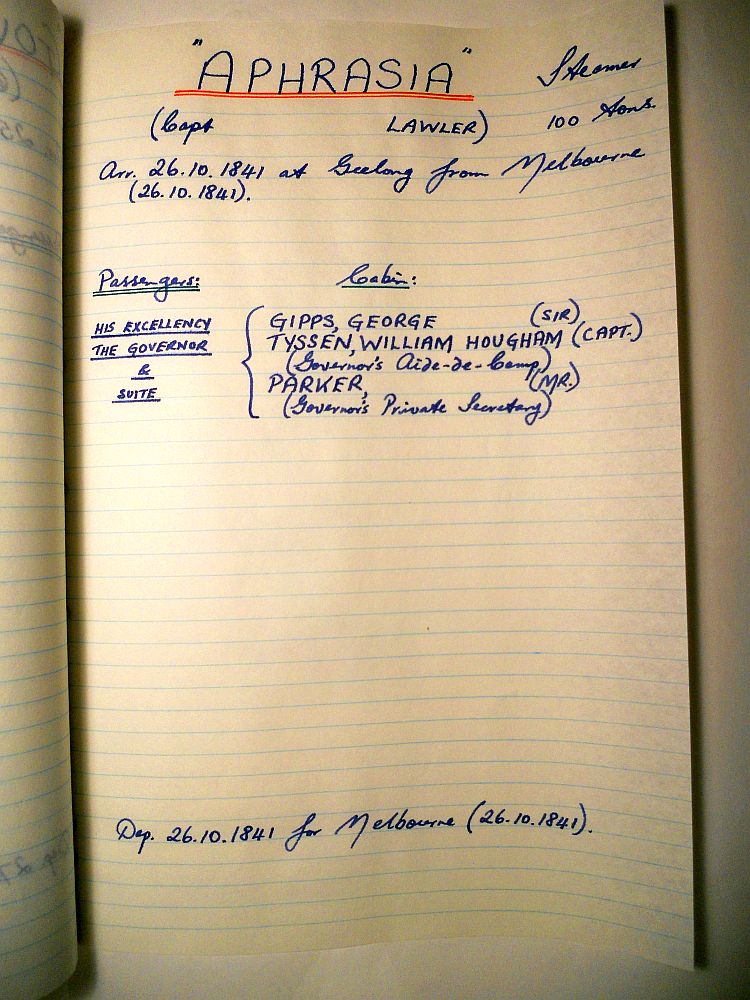 "APHRASIA" Steamer
(Capt LAWLER) 100 tons.
Arr. 26.10.1841 at Geelong from Melbourne
(26.10.1841).
Passengers: Cabin:
HIS EXCELLENCY
THE GOVERNOR
&
SUITE
GIPPS, GEORGE (SIR)
TYSSEN, WILLIAM HOUGHAM (CAPT.)
(Governor's Aide-de-Camp)
PARKER, (MR.)
(Governor's Private Secretary)
Dep. 26.10.1841 for Melbourne (26.10.1841).